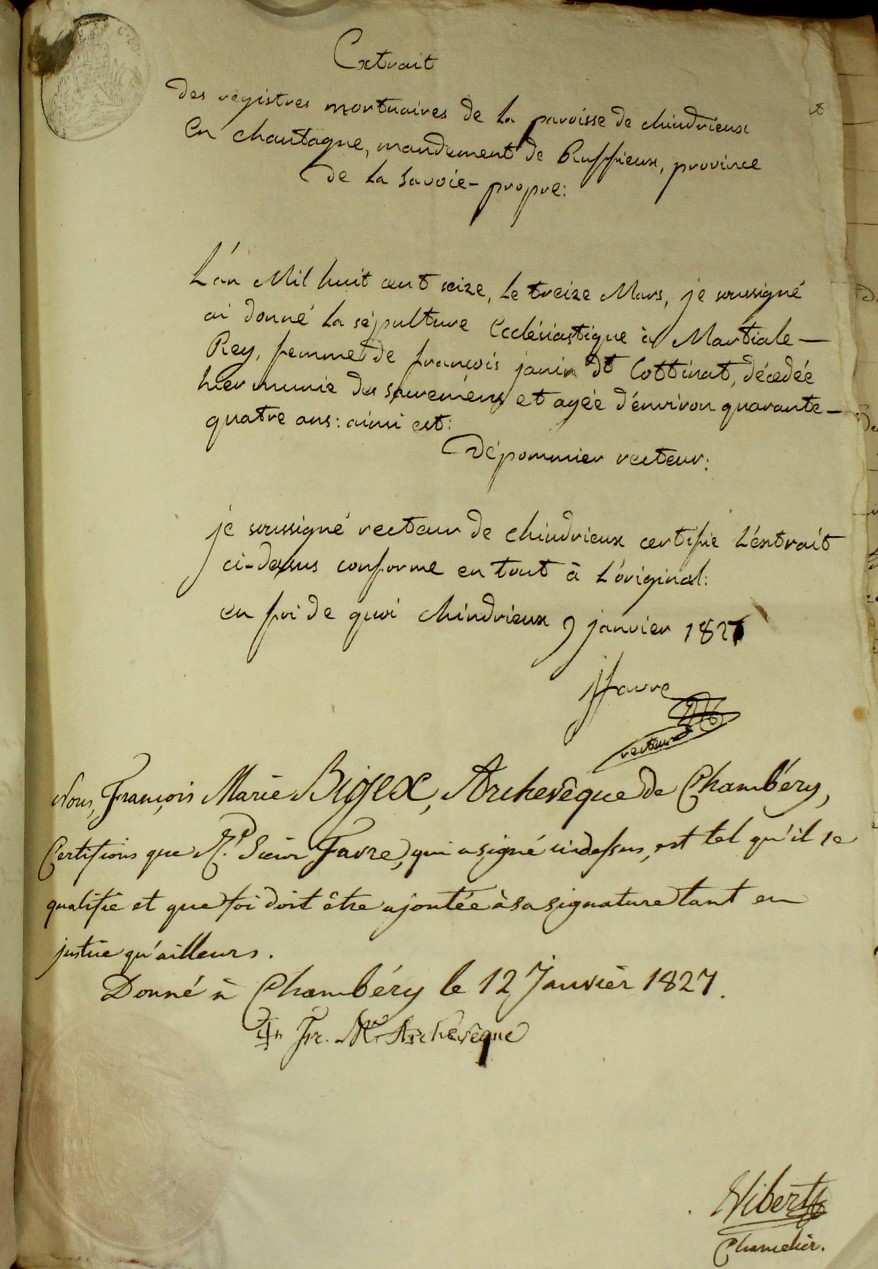 Extrait
des régistres mortuaires de la paroisse de chindrieux
en chautagne, mandement de Ruffieux, province
de la Savoie-propre:
L'an Mil huit cent seize, le treize Mars, je soussigné
ai donné la sépulture Ecclésiastique à Martiale
Rey, femme de françois janin dt Cottinat, décedée
hier munie des sacremens et agée d'environ quarante-
quatre ans: ainsi est:
Dépommier recteur:
je soussigné recteur de chindrieux certifie l'extrait
ci-dessus conforme en tout à l'original:
en foi de quoi chindrieux 9 janvier 1827
jfavre
recteur
Nous, François Marie Bigex, Archevêque de Chambéry,
Certifions que Rd. Sieur Favre, qui a signé cidessus, est tel qu'il se
qualifie et que foi doit être ajoutée à sa signature tant en
justice qu'ailleurs.
Donné à Chambéry le 12 Janvier 1827.
Fr. Me Archevêque
Vibert
Chancelier.